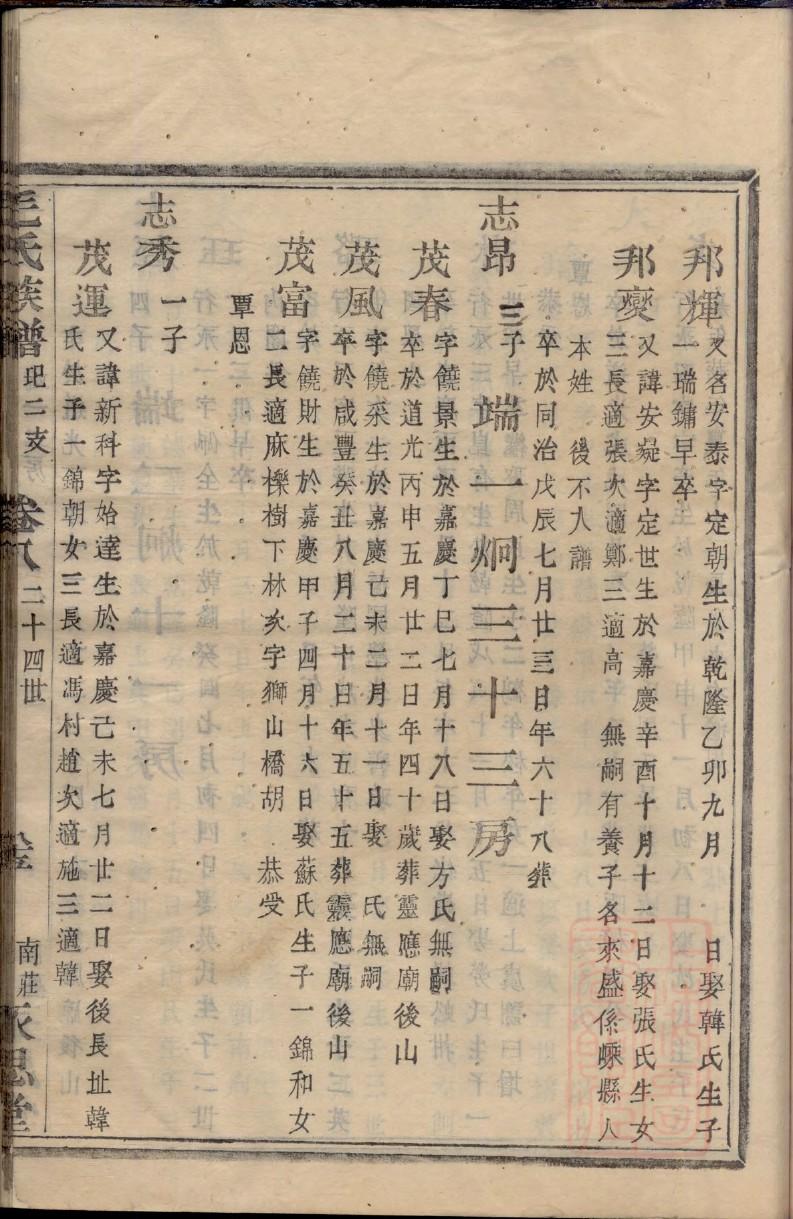 邦輝又名安泰字定朝生於乾隆乙卯九月 日娶韓氏生子
一瑞鏞早卒
邦奕又諱安嶷字定世生於嘉慶辛酉十月十二日娶張氏生女
三長適張次適鄭三適高 無嗣有養子名來盛係嵊縣人
本姓 後不入譜
卒於同治戊辰七月廿三日年六十八葬
志昂 三子 端一炯三十三房
茂春字饒景生於嘉慶丁巳七月十八日娶方氏無嗣
卒於道光丙申五月廿二日年四十歲葬靈應廟後山
茂風字饒采生於嘉慶己未二月十一日娶 氏無嗣
卒於咸豐癸丑八月二十日年五十五葬靈應廟後山
茂富字饒財生於嘉慶甲子四月十六日娶蘇氏生子一錦和女
二長適麻櫟樹下林亥字獅山橋胡 恭受
覃恩
志秀 一子
茂運又諱新科字始達生於嘉慶己未七月廿二日娶後長址韓
氏生子一錦朝女三長適馮村趙次適施三適韓
毛氏族譜 玘二支 卷八 二十四世 南莊永思堂